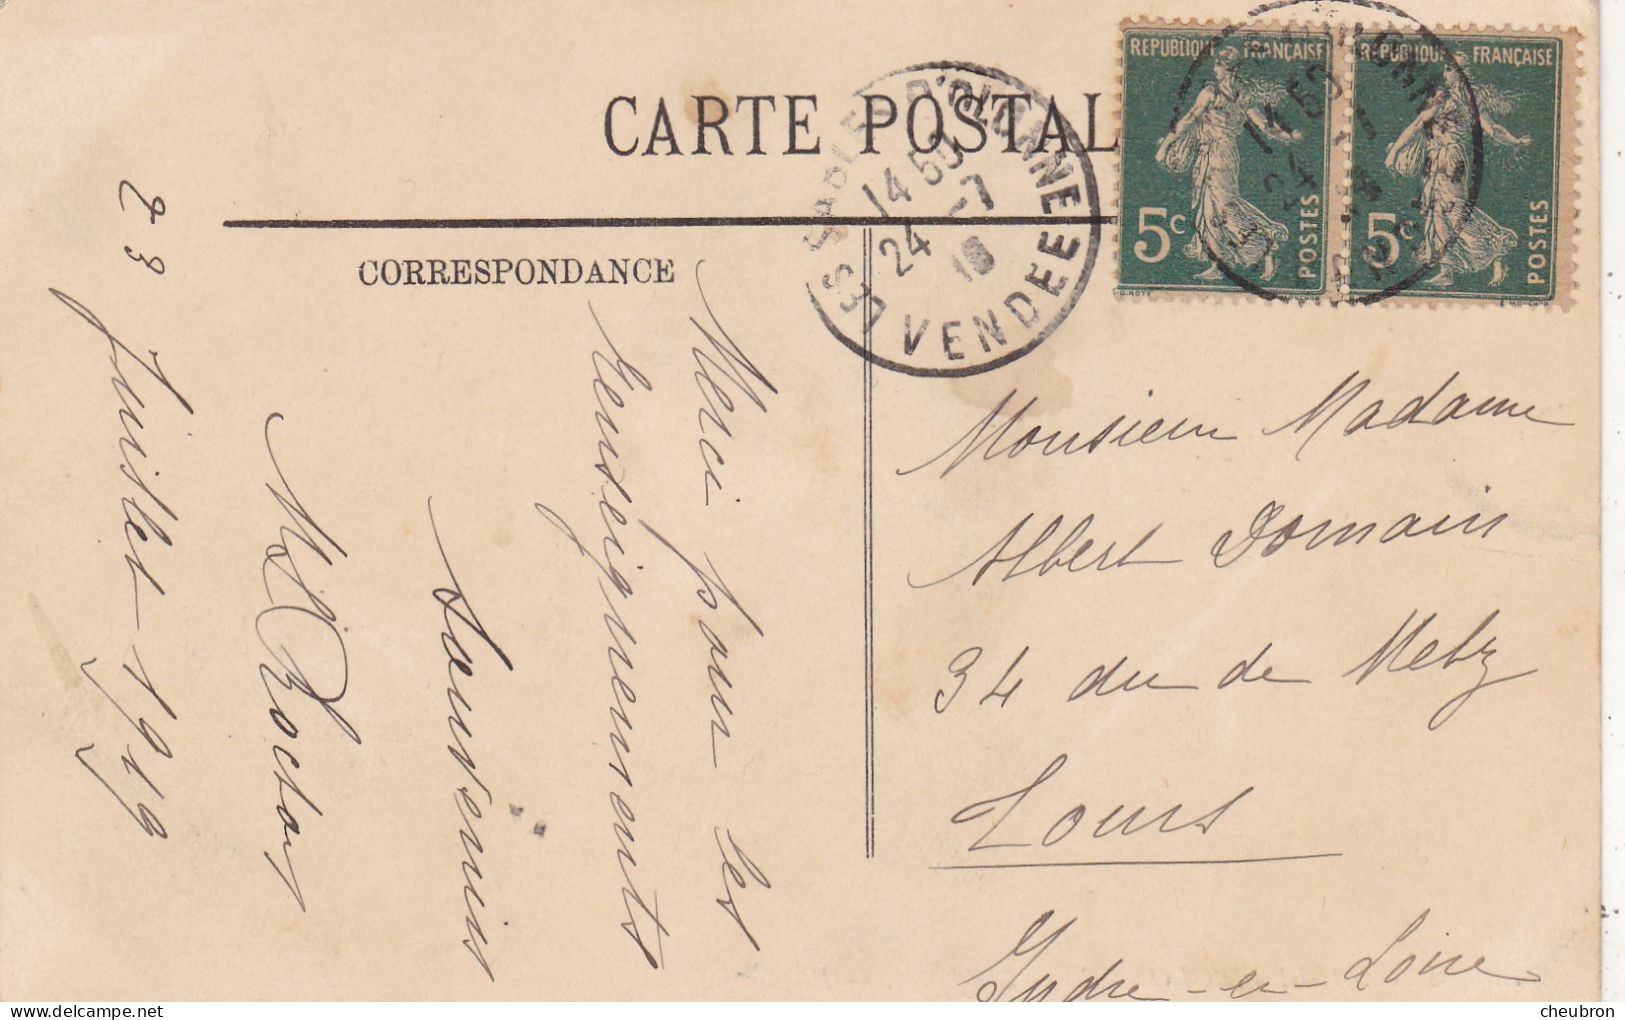 CARTE POSTAL
CORRESPONDANCE
LES SABLES D'OLONNE
14 50
24 -7
19
VENDEE
REPUBLIQUE FRANÇAISE
5c
POSTES
REPUBLIQUE FRANÇAISE
5c
POSTES
14 50
24
Merci pour les
renseignements
Souvenirs
23 Juillet 1919
Monsieur Madame
Albert Domain
34 du de Metz
Tours
Indre-en-Loire
cheubron